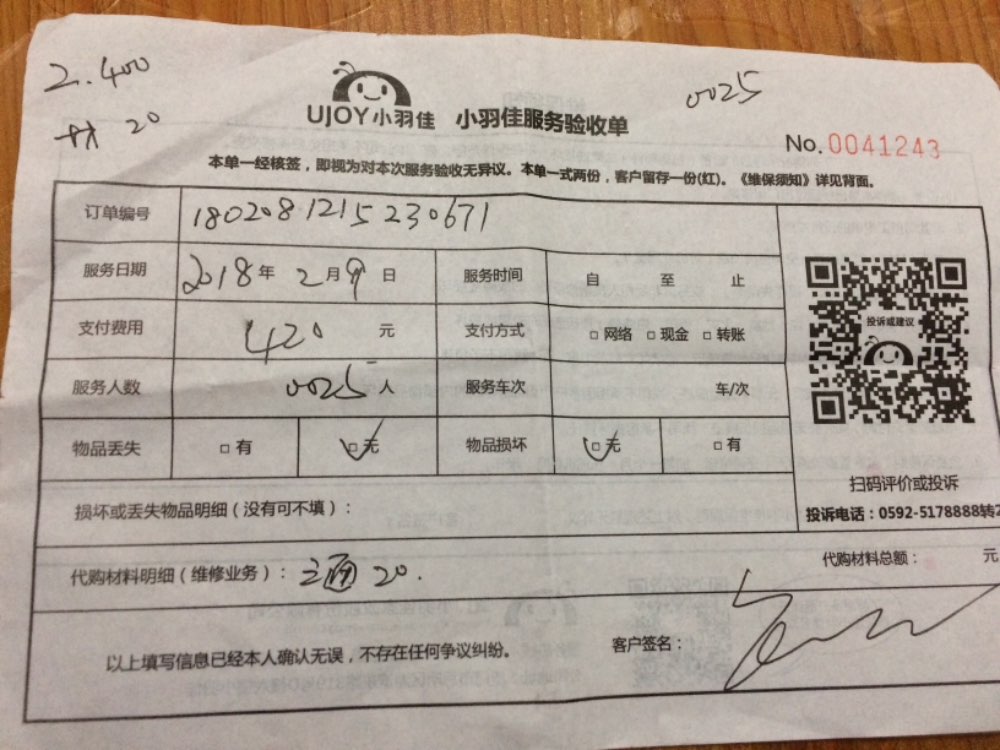 2.400
0025
20
UJOY小羽佳 小羽佳服务验收单
No.0041243
本单一经核签，即视为对本次服务验收无异议。本单一式两份，客户留存一份(红)。《维保须知》详见背面。
订单编号 1802081215230671
服务日期 2018年 2月9日 服务时间 自 至 止
支付费用 420 元 支付方式 □网络 □现金 □转账
投诉或建议
服务人数 0025人 服务车次 车/次
物品丢失 □有 □无 物品损坏 □无 □有
扫码评价或投诉
损坏或丢失物品明细（没有可不填）：
投诉电话：0592-5178888转2
代购材料明细（维修业务）： 20.
代购材料总额： 元
以上填写信息已经本人确认无误，不存在任何争议纠纷。 客户签名：